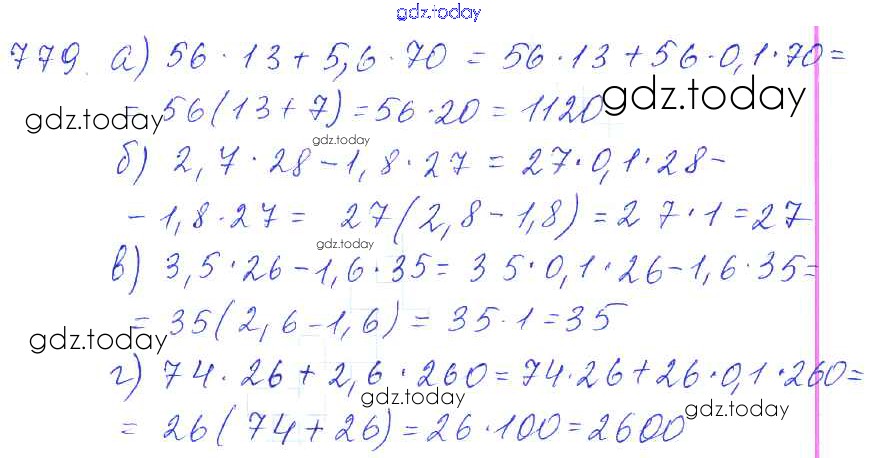 gdz.today
779. а) 56 · 13 + 5,6 · 70 = 56 · 13 + 56 · 0,1 · 70 =
= 56 (13 + 7) = 56 · 20 = 1120
gdz.today
gdz.today
gdz.today
б) 2,7 · 28 – 1,8 · 27 = 27 · 0,1 · 28 –
– 1,8 · 27 = 27 (2,8 – 1,8) = 27 · 1 = 27
gdz.today
в) 3,5 · 26 – 1,6 · 35 = 35 · 0,1 · 26 – 1,6 · 35 =
= 35 (2,6 – 1,6) = 35 · 1 = 35
gdz.today
г) 74 · 26 + 2,6 · 260 = 74 · 26 + 26 · 0,1 · 260 =
gdz.today
gdz.today
= 26 (74 + 26) = 26 · 100 = 2600